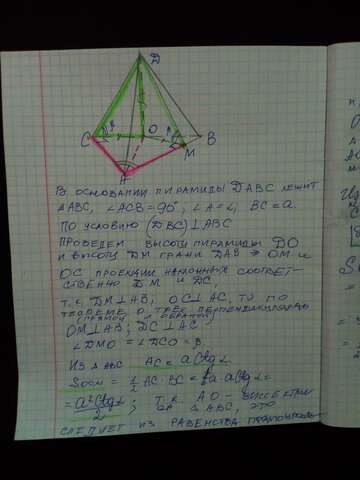 D
C O B
M
A
В основании пирамиды DABC лежит
△ABC, ∠ACB=90°, ∠A=α, BC=a
По условию (DBC)⊥ABC
Проведем высоту пирамиды DO
и высоту DM грани DAB ⇒ OM и
OC проекции наклонных соответ-
ственно DM и DC,
т.к. DM⊥AB; OC⊥AC, то по
теореме о трех перпендикулярах
(прямой и обратной)
OM⊥AB; DC⊥AC
∠DMO = ∠DCO = β
Из △ABC AC = a ctgα
Sосн = ½ AC·BC = ½a·a ctgα =
= a²ctgα/2; т.к. AO - биссектриса
∠A △ABC, это
следует из равенства